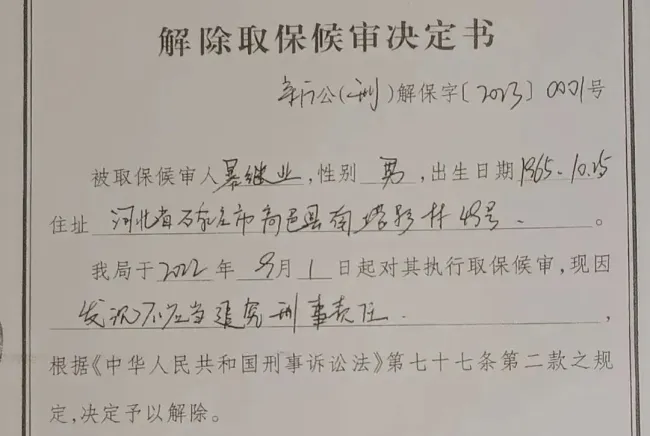 解除取保候审决定书
新公(刑)解保字〔2023〕0001号
被取保候审人暴继业,性别 男,出生日期1965.10.25
住址 河北省石家庄市高邑县南塔影村49号.。
我局于2022年 9月 1日起对其执行取保候审,现因
发现不应当追究刑事责任.,
根据《中华人民共和国刑事诉讼法》第七十七条第二款之规
定,决定予以解除。